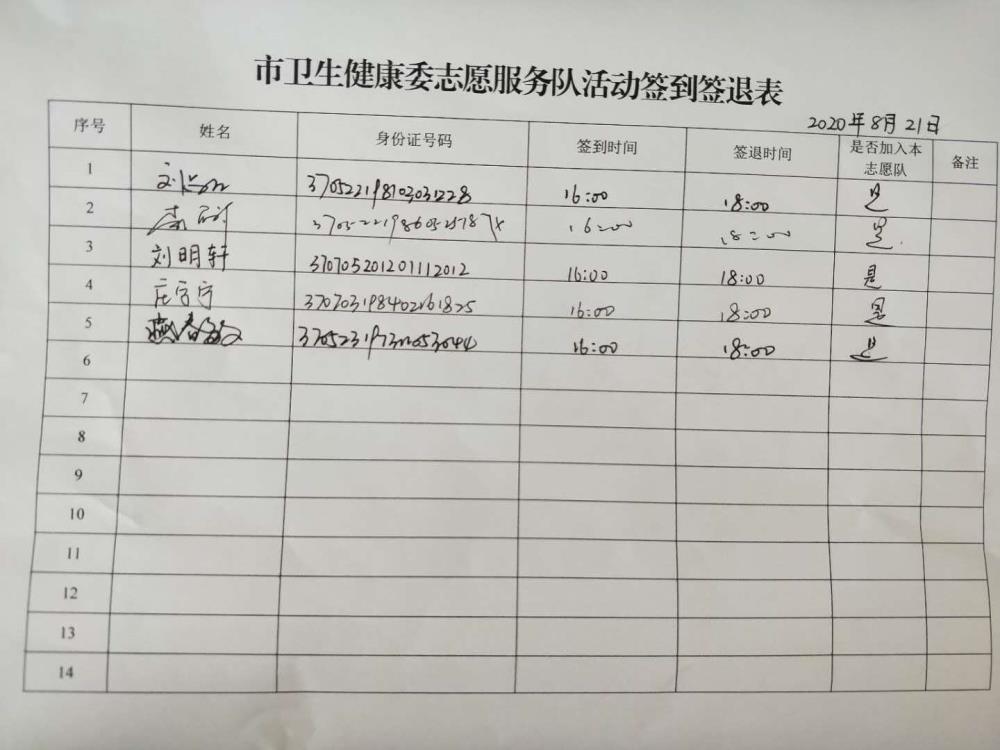 市卫生健康委志愿服务队活动签到签退表
2020年8月21日
序号 姓名 身份证号码 签到时间 签退时间 是否加入本志愿队 备注
1 370522198103031228 16:00 18:00 是
2 16:00 18:00 是
3 刘明轩 370705201201112012 16:00 18:00 是
4 370703198402261825 16:00 18:00 是
5 16:00 18:00 是
6
7
8
9
10
11
12
13
14